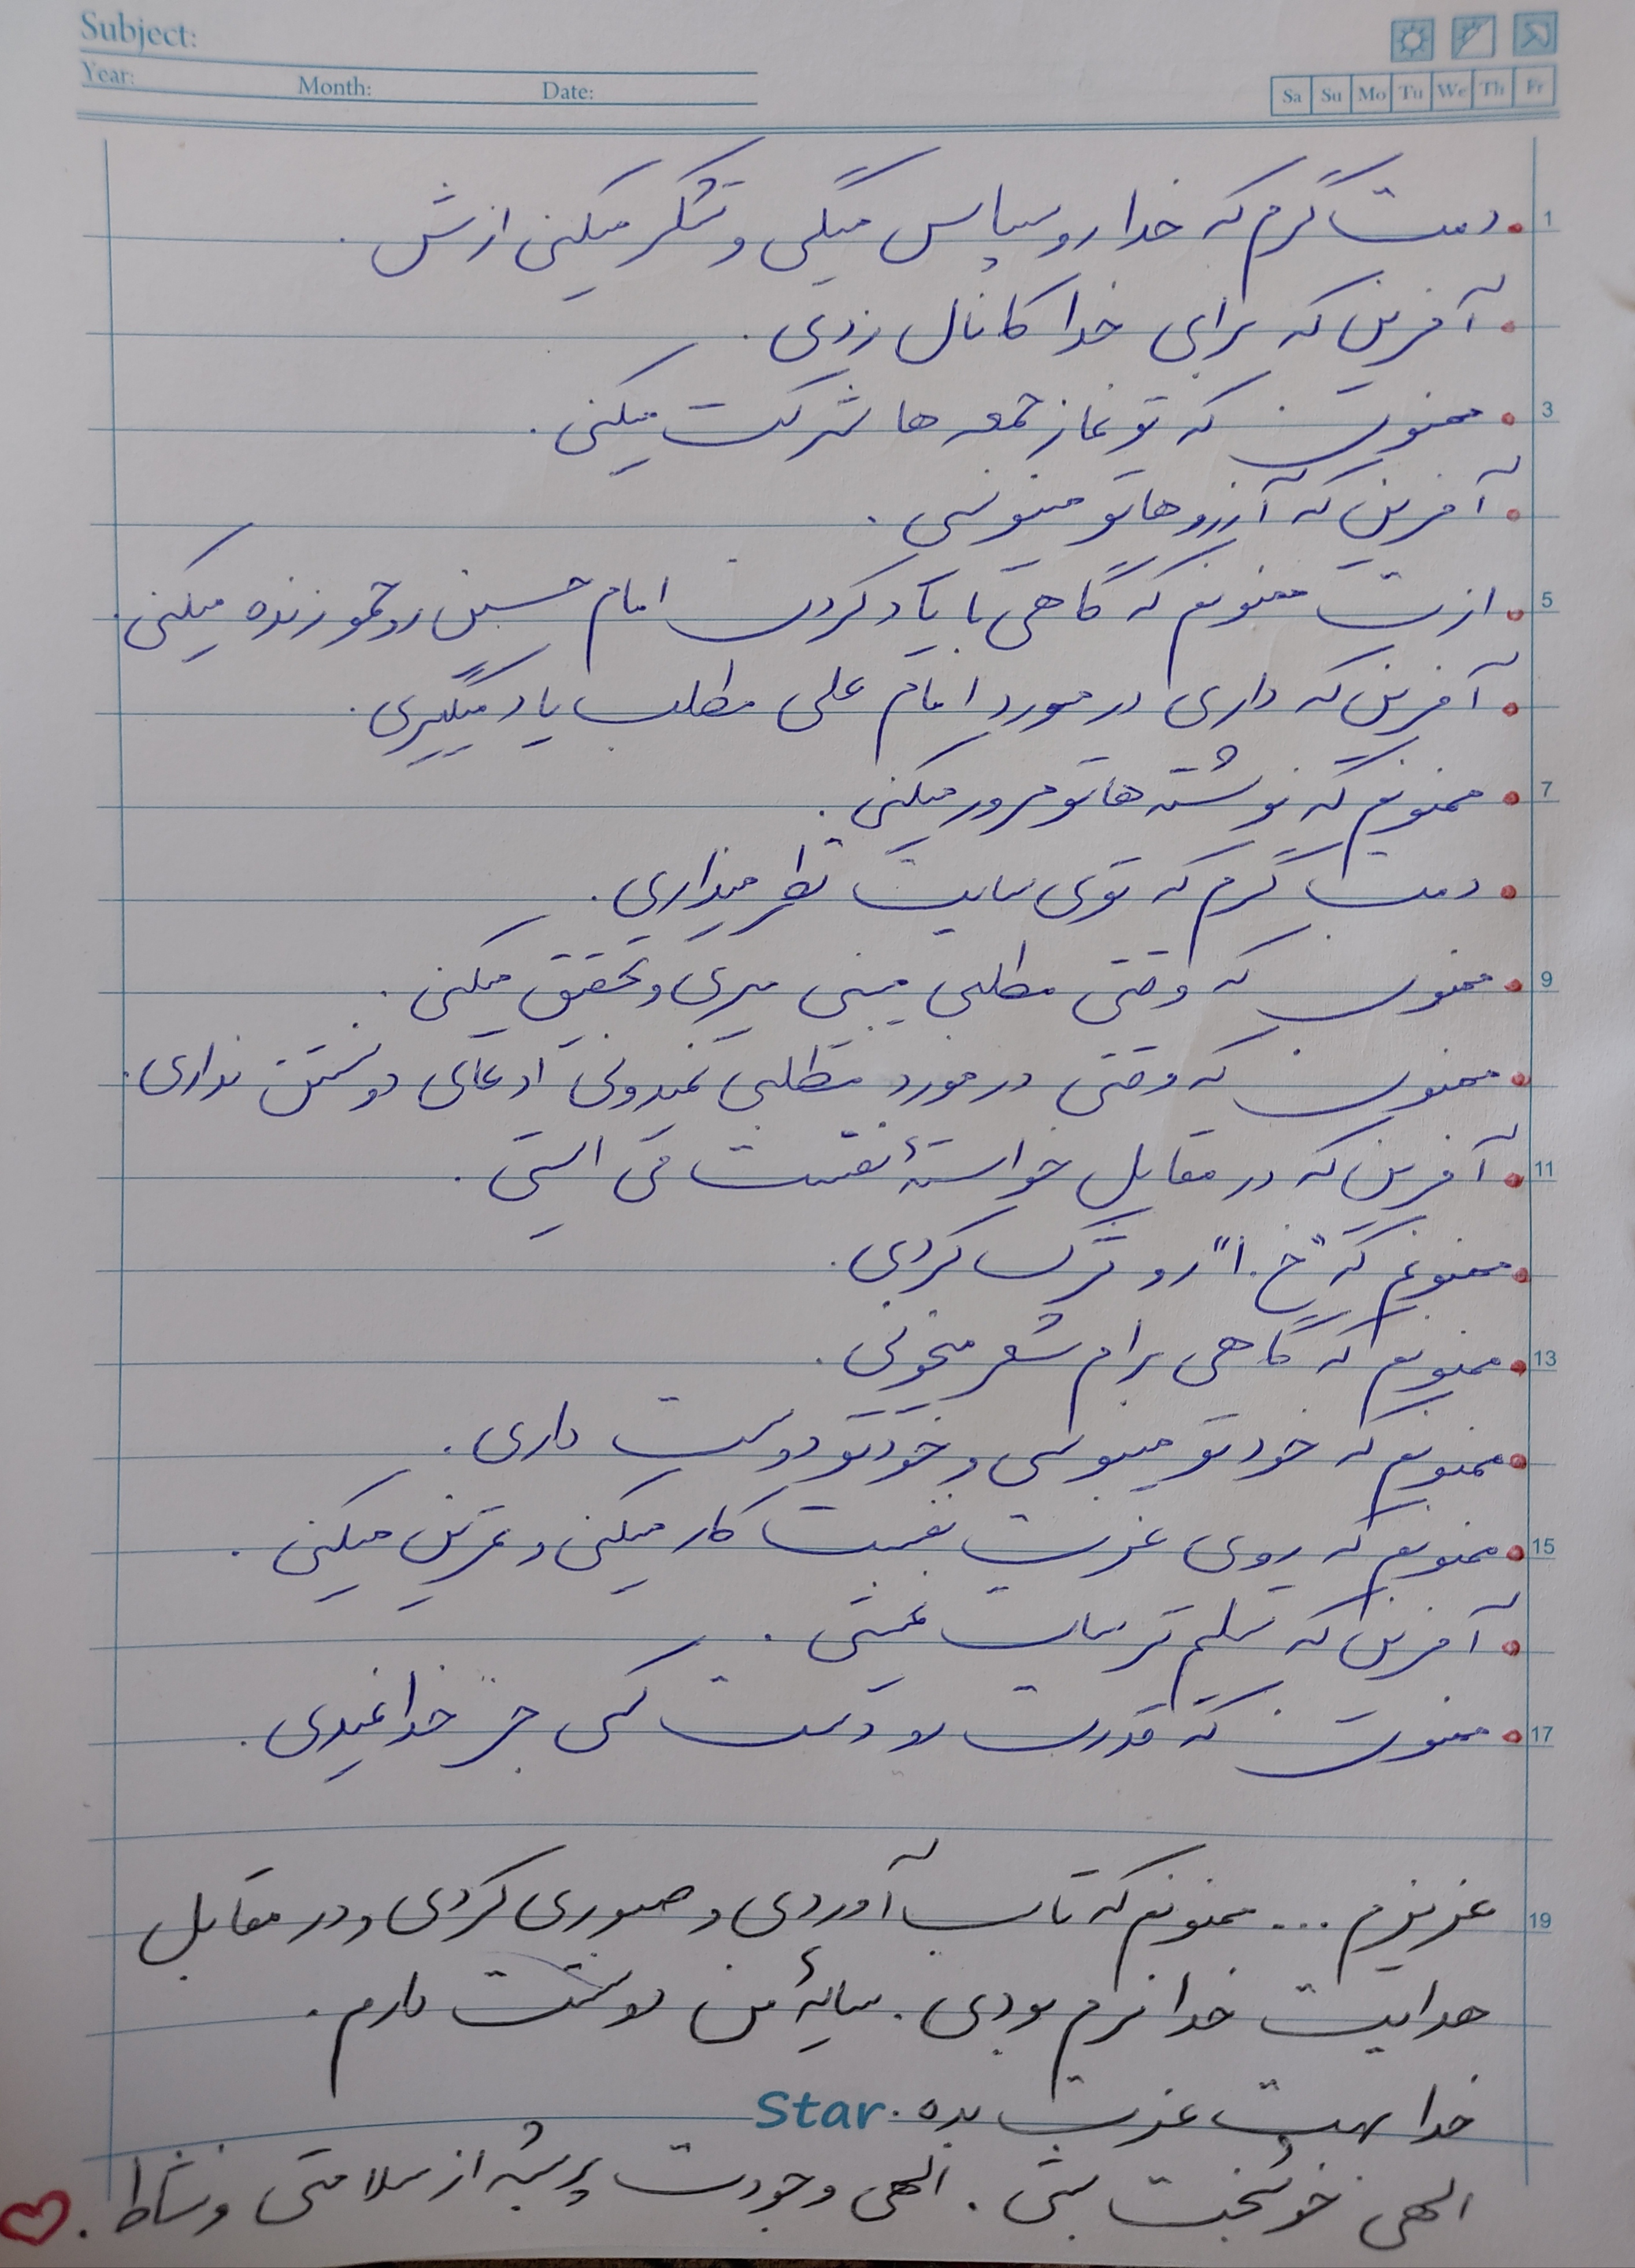 Subject:
Year: Month: Date:
Sa Su Mo Tu We Th Fr
1 دمت گرم که خدا رو سپاس میگی و تشکر میکنی ازش.
آفرین که برای خدا کانال زدی.
3 ممنون که تو نماز جمعه ها شرکت میکنی.
آفرین که آرزوهاتو مینویسی.
5 ازت ممنونم که گاهی با یاد کردن امام حسین روحمو زنده میکنی.
آفرین که داری در مورد امام علی مطلب یاد میگیری.
7 ممنونم که نوشته هاتو مرور میکنی.
دمت گرم که توی سایت نظر میذاری.
9 ممنون که وقتی مطلبی میبینی میری و تحقیق میکنی.
ممنون که وقتی در مورد مطلبی نمیدونی ادعای دونستن نداری.
11 آفرین که در مقابل خواستهٔ نفست می ایستی.
ممنونم که "خ.ا" رو ترک کردی.
13 ممنونم که گاهی برام شعر میخونی.
ممنونم که خودتو میبوسی و خودتو دوست داری.
15 ممنونم که روی عزت نفست کار میکنی و تمرین میکنی.
آفرین که تسلیم ترسات نمیشی.
17 ممنون که قدرت رو دست کسی جز خدا نمیدی.
19 عزیزم ... ممنونم که تاب آوردی و صبوری کردی و در مقابل
هدایت خدا نرم بودی. سایهٔ من دوستت دارم.
خدا بهت عزت بده. Star
الهی خوشبخت بشی. الهی وجودت پر بشه از سلامتی و نشاط.